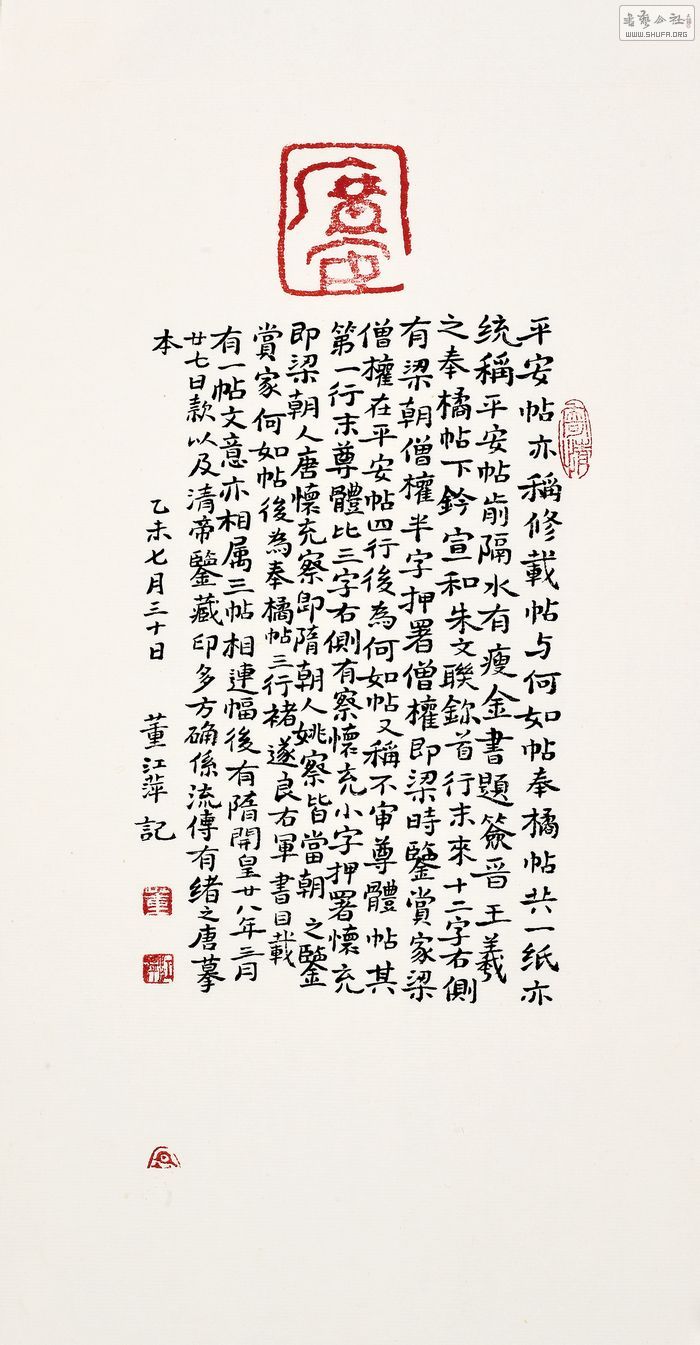 平安帖亦稱修載帖与何如帖奉橘帖共一纸亦
统稱平安帖前隔水有瘦金書題簽晉王羲
之奉橘帖下鈐宣和朱文聯鉨首行末來十二字右側
有梁朝僧權半字押署僧權即梁時鑒賞家梁
僧權在平安帖四行後為何如帖又稱不审尊體帖其
第一行末尊體比三字右側有察懷充小字押署懷充
即梁朝人唐懷充察即隋朝人姚察皆當朝之鑒
賞家何如帖後為奉橘帖三行褚遂良右軍書目載
有一帖文意亦相属三帖相連幅後有隋開皇廿八年三月
廿七日款以及清帝鑒藏印多方确係流傳有绪之唐摹
本
乙未七月三十日 董江萍記
書藝公社
WWW.SHUFA.ORG